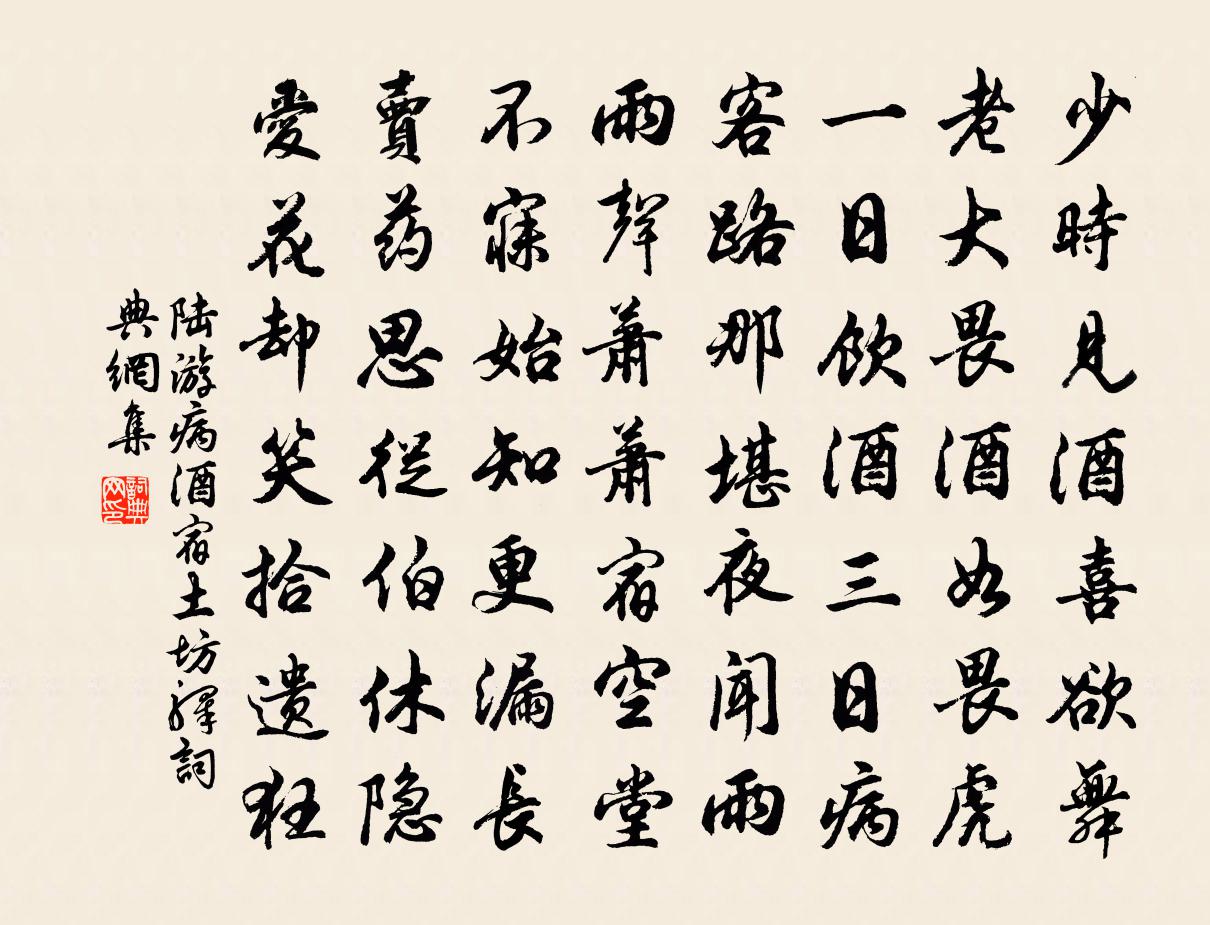 少時見酒喜欲舞
老大畏酒如畏虎
一日飲酒三日病
客路那堪夜聞雨
雨聲蕭蕭宿空堂
不寐始知更漏長
賣药思從伯休隐
愛花却笑拾遗狂
陆游病酒宿土坊驛詞
典網集
詞典
网印